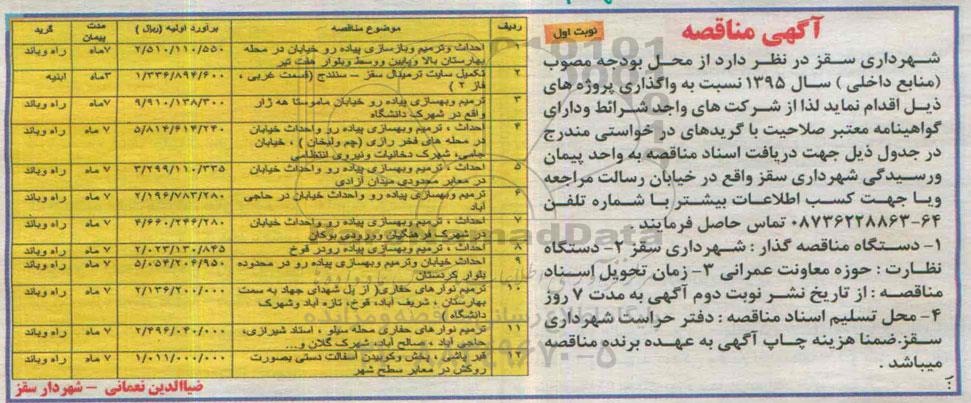 آگهی مناقصه
نوبت اول
شهرداری سقز در نظر دارد از محل بودجه مصوب
(منابع داخلی) سال ۱۳۹۵ نسبت به واگذاری پروژه های
ذیل اقدام نماید لذا از شرکت های واجد شرائط ودارای
گواهینامه معتبر صلاحیت با گریدهای در خواستی مندرج
در جدول ذیل جهت دریافت اسناد مناقصه به واحد پیمان
ورسیدگی شهرداری سقز واقع در خیابان رسالت مراجعه
ویا جهت کسب اطلاعات بیشتر با شماره تلفن
۰۸۷۳۶۲۲۸۸۶۳-۶۴ تماس حاصل فرمایند.
۱- دستگاه مناقصه گذار : شهرداری سقز ۲- دستگاه
نظارت : حوزه معاونت عمرانی ۳- زمان تحویل اسناد
مناقصه : از تاریخ نشر نوبت دوم آگهی به مدت ۷ روز
۴- محل تسلیم اسناد مناقصه : دفتر حراست شهرداری
سقز.ضمنا هزینه چاپ آگهی به عهده برنده مناقصه
میباشد .
ردیف موضوع مناقصه برآورد اولیه (ریال) مدت پیمان گرید
۱ احداث وترمیم وبازسازی پیاده رو خیابان در محله ۲/۵۱۰/۱۱۰/۵۵۰ ۷ماه راه وباند
بهارستان بالا وپایین ووسط وبلوار هفت تیر
۲ تکمیل سایت ترمینال سقز – سنندج (قسمت غربی ، ۱/۳۳۶/۸۹۴/۶۰۰ ۳ماه ابنیه
فاز ۲ )
۳ ترمیم وبهسازی پیاده رو خیابان ماموستا هه ژار ۹/۹۱۰/۱۳۸/۳۰۰ ۷ماه راه وباند
واقع در شهرک دانشگاه
۴ احداث ، ترمیم وبهسازی پیاده رو واحداث خیابان ۵/۸۱۴/۶۱۴/۲۴۰ ۷ ماه راه وباند
در محله های فخر رازی (چم ولیخان ) ، خیابان
جامی، شهرک دخانیات ونیروی انتظامی
۵ احداث ، ترمیم وبهسازی پیاده رو واحداث خیابان ۳/۲۹۹/۱۱۰/۳۳۵ ۷ ماه راه وباند
در معابر محدودی میدان آزادی
۶ ترمیم وبهسازی پیاده رو واحداث خیابان در حاجی ۲/۱۹۶/۷۸۳/۲۸۰ ۷ ماه راه وباند
آباد
۷ احداث ، ترمیم وبهسازی پیاده رو واحداث خیابان ۴/۶۶۰/۲۴۶/۲۸۰ ۷ ماه راه وباند
در شهرک فرهنگیان وورودی بوکان
۸ احداث ، ترمیم وبهسازی پیاده رودر قوخ ۲/۰۲۳/۱۳۰/۸۴۵ ۷ ماه راه وباند
۹ احداث خیابان وترمیم وبهسازی پیاده رو در محدوده ۵/۰۵۴/۲۰۶/۹۵۰ ۷ ماه راه وباند
بلوار کردستان
۱۰ ترمیم نوارهای حفاری( از پل شهدای جهاد به سمت ۲/۱۳۶/۲۰۰/۰۰۰ ۷ ماه راه وباند
بهارستان ، شریف آباد، قوخ، تازه آباد وشهرک
دانشگاه)
۱۱ ترمیم نوارهای حفاری محله سیلو ، استاد شیرازی، ۲/۴۹۶/۰۴۰/۰۰۰ ۷ ماه راه وباند
حاجی آباد ، صالح آباد، شهرک گلان و...
۱۲ قیر پاشی ، پخش وکوبیدن آسفالت دستی بصورت ۱/۰۱۱/۰۰۰/۰۰۰ ۷ ماه راه وباند
روکش در معابر سطح شهر
ضیاالدین نعمانی – شهردار سقز